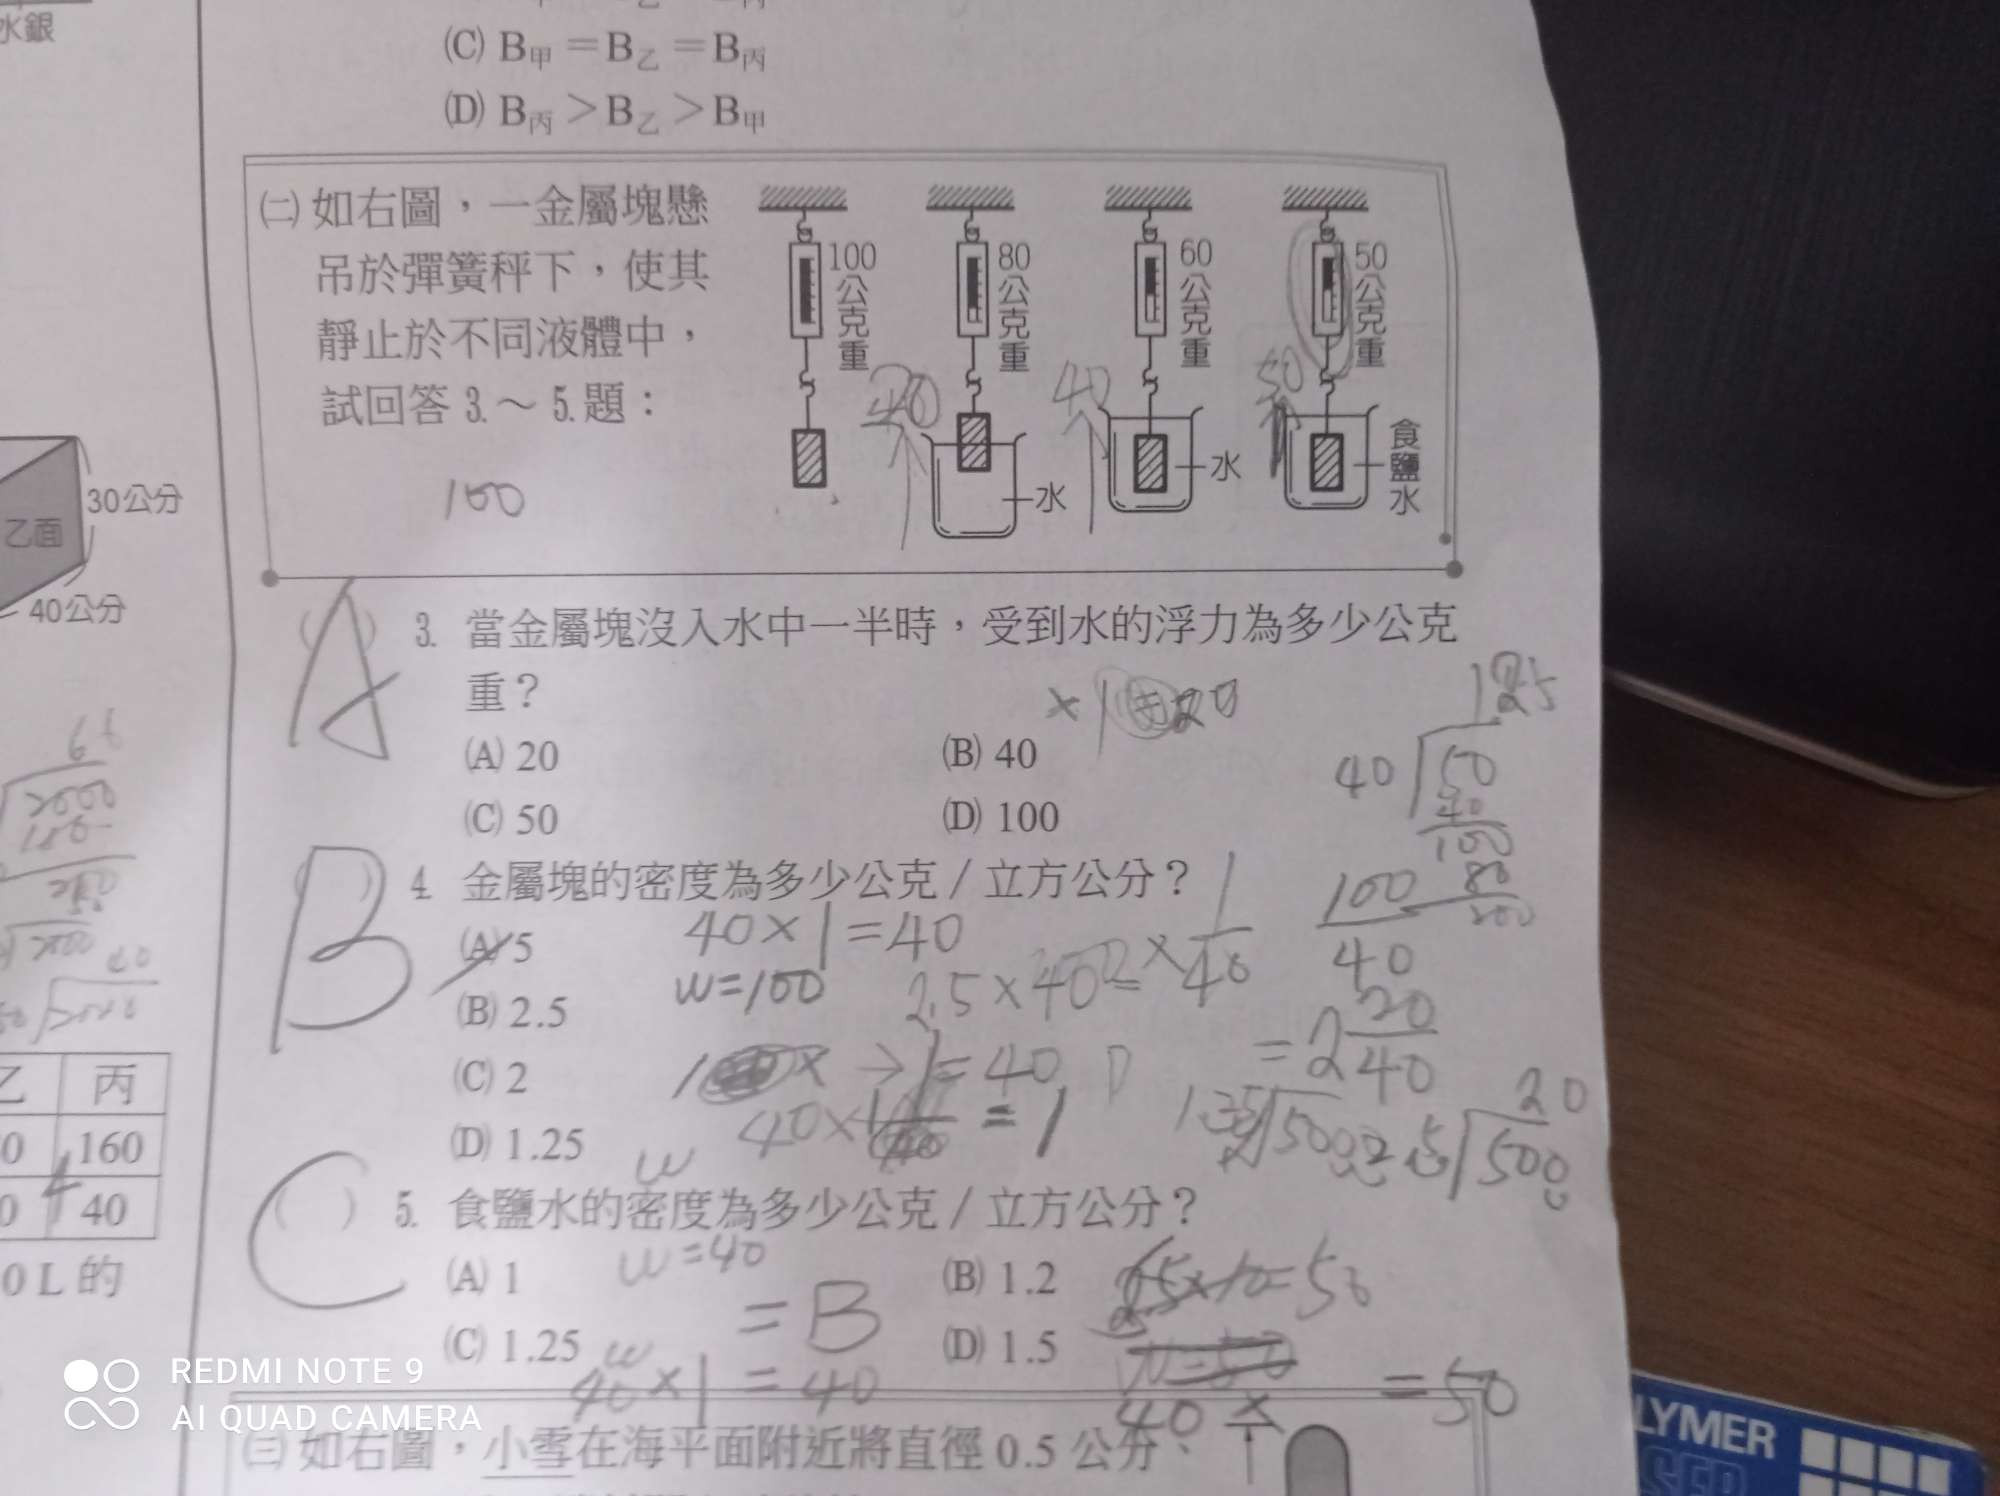 水銀
(C) B甲＝B乙＝B丙
(D) B丙＞B乙＞B甲
㈡ 如右圖，一金屬塊懸
吊於彈簧秤下，使其
靜止於不同液體中，
試回答 3.～ 5.題：
100
100公克重
80公克重
60公克重
50公克重
40
50
水
水
食鹽水
30公分
乙面
40公分
A
3. 當金屬塊沒入水中一半時，受到水的浮力為多少公克
重？
(A) 20
(B) 40
(C) 50
(D) 100
40 50
40
100
80
200
B
4. 金屬塊的密度為多少公克 / 立方公分？
(A) 5
(B) 2.5
(C) 2
(D) 1.25
40×1=40
w=100
100
40
=2 20
40
2.5×40
=40
40×1
=1
20
500
C
5. 食鹽水的密度為多少公克 / 立方公分？
(A) 1
(B) 1.2
(C) 1.25
(D) 1.5
w
w=40
=B
w
40×1=40
=50
40 ×
=50
乙 丙
0 160
0 40
0 L 的
㈢ 如右圖，小雪在海平面附近將直徑 0.5 公分、
REDMI NOTE 9
AI QUAD CAMERA
LYMER